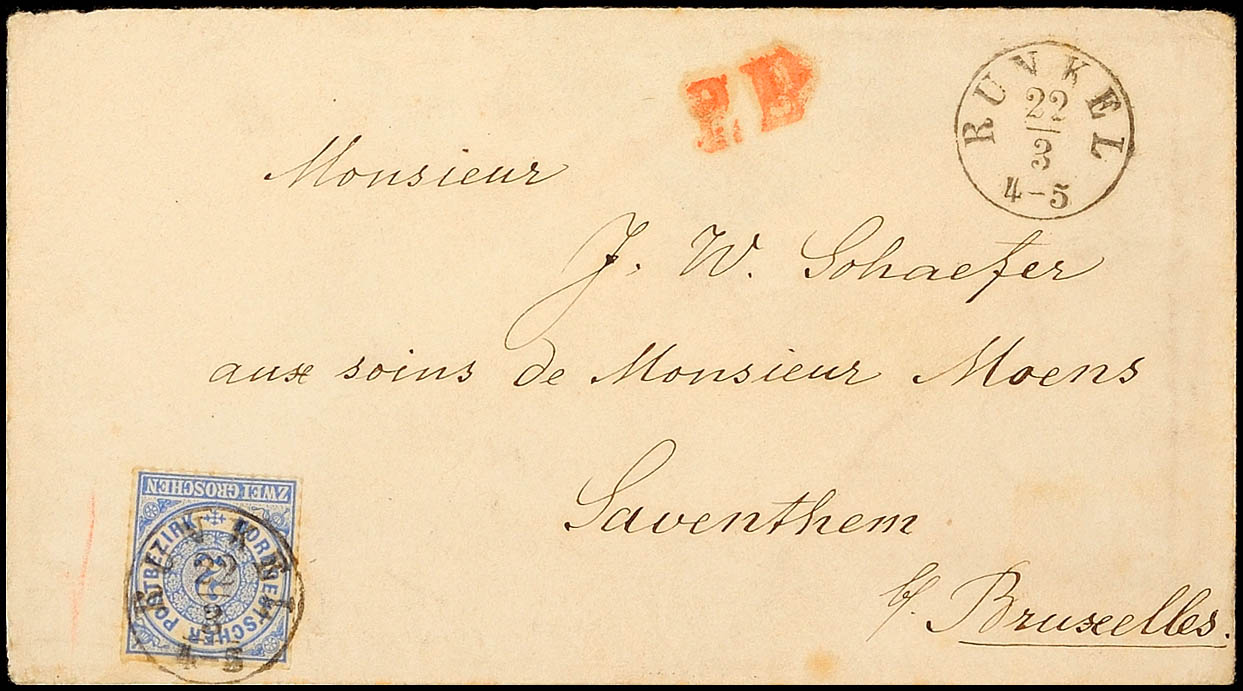 P.D.
RUNKEL
22
3
4-5
Monsieur
J. W. Schaefer
aux soins de Monsieur Moens
Saventhem
b/ Bruxelles.
ZWEI GROSCHEN
NORDDEUTSCHER POSTBEZIRK
RUNKEL
22
3
4-5